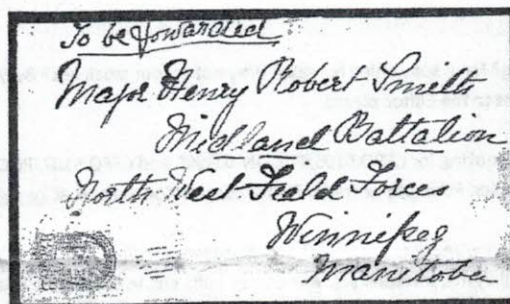 To be forwarded
Major Henry Robert Smith
Midland Battalion
North West Feald Force
Winnipeg
Manitoba